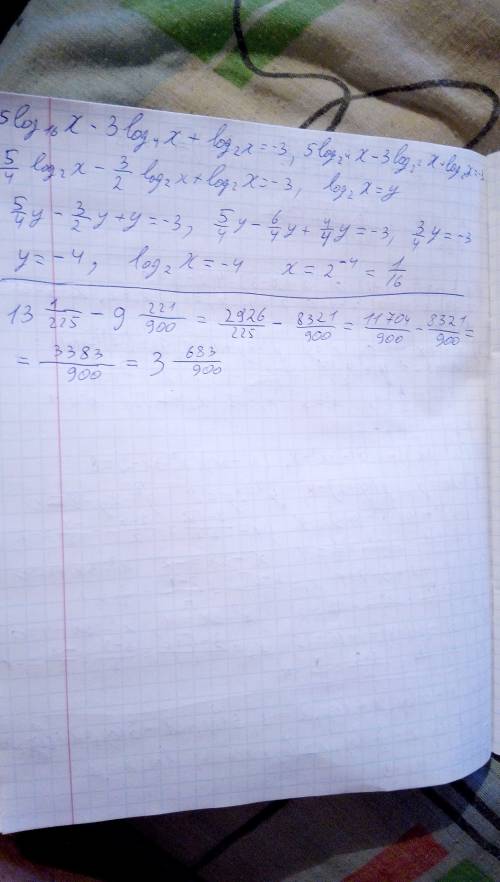 5log₁₆x - 3log₄x + log₂x = -3, 5log₂⁴x - 3log₂²x + log₂x = -3
5/4 log₂x - 3/2 log₂x + log₂x = -3, log₂x = y
5/4y - 3/2y + y = -3, 5/4y - 6/4y + 4/4y = -3, 3/4y = -3
y = -4, log₂x = -4 x = 2⁻⁴ = 1/16
13 1/225 - 9 221/900 = 2926/225 - 8321/900 = 11704/900 - 8321/900 =
= 3383/900 = 3 683/900